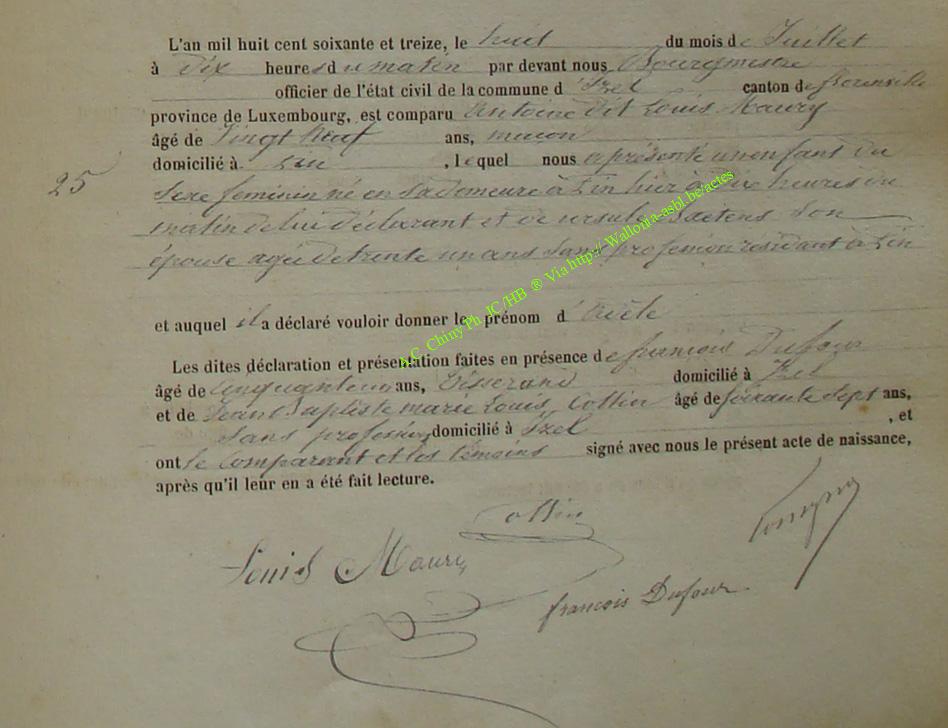 L'an mil huit cent soixante et treize, le huit du mois de Juillet
à Dix heures du matin par devant nous Bourgmestre
officier de l'état civil de la commune d'Izel canton de florenville
province de Luxembourg, est comparu Antoine Dit Louis Maury
âgé de Vingt Neuf ans, maçon
domicilié à , lequel nous a présenté un enfant du
25
Sexe feminin né en Sa demeure à hier à Dix heures du
matin de lui déclarant et de ursule Son
épouse agée de trente un ans Sans profession résidant à
et auquel il a déclaré vouloir donner le prénom d'
Les dites déclaration et présentation faites en présence de francois Dufour
âgé de Cinquante un ans, Tisserand domicilié à Izel
et de Jean Baptiste marie Louis Collin âgé de Soixante Sept ans,
Sans profession domicilié à Izel , et
ont le Comparant et les témoins signé avec nous le présent acte de naissance,
après qu'il leur en a été fait lecture.
Collin
Louis Maury
francois Dufour
A.C. Chiny Ph. JC/HB ® Via http://Wallonia-asbl.be/actes